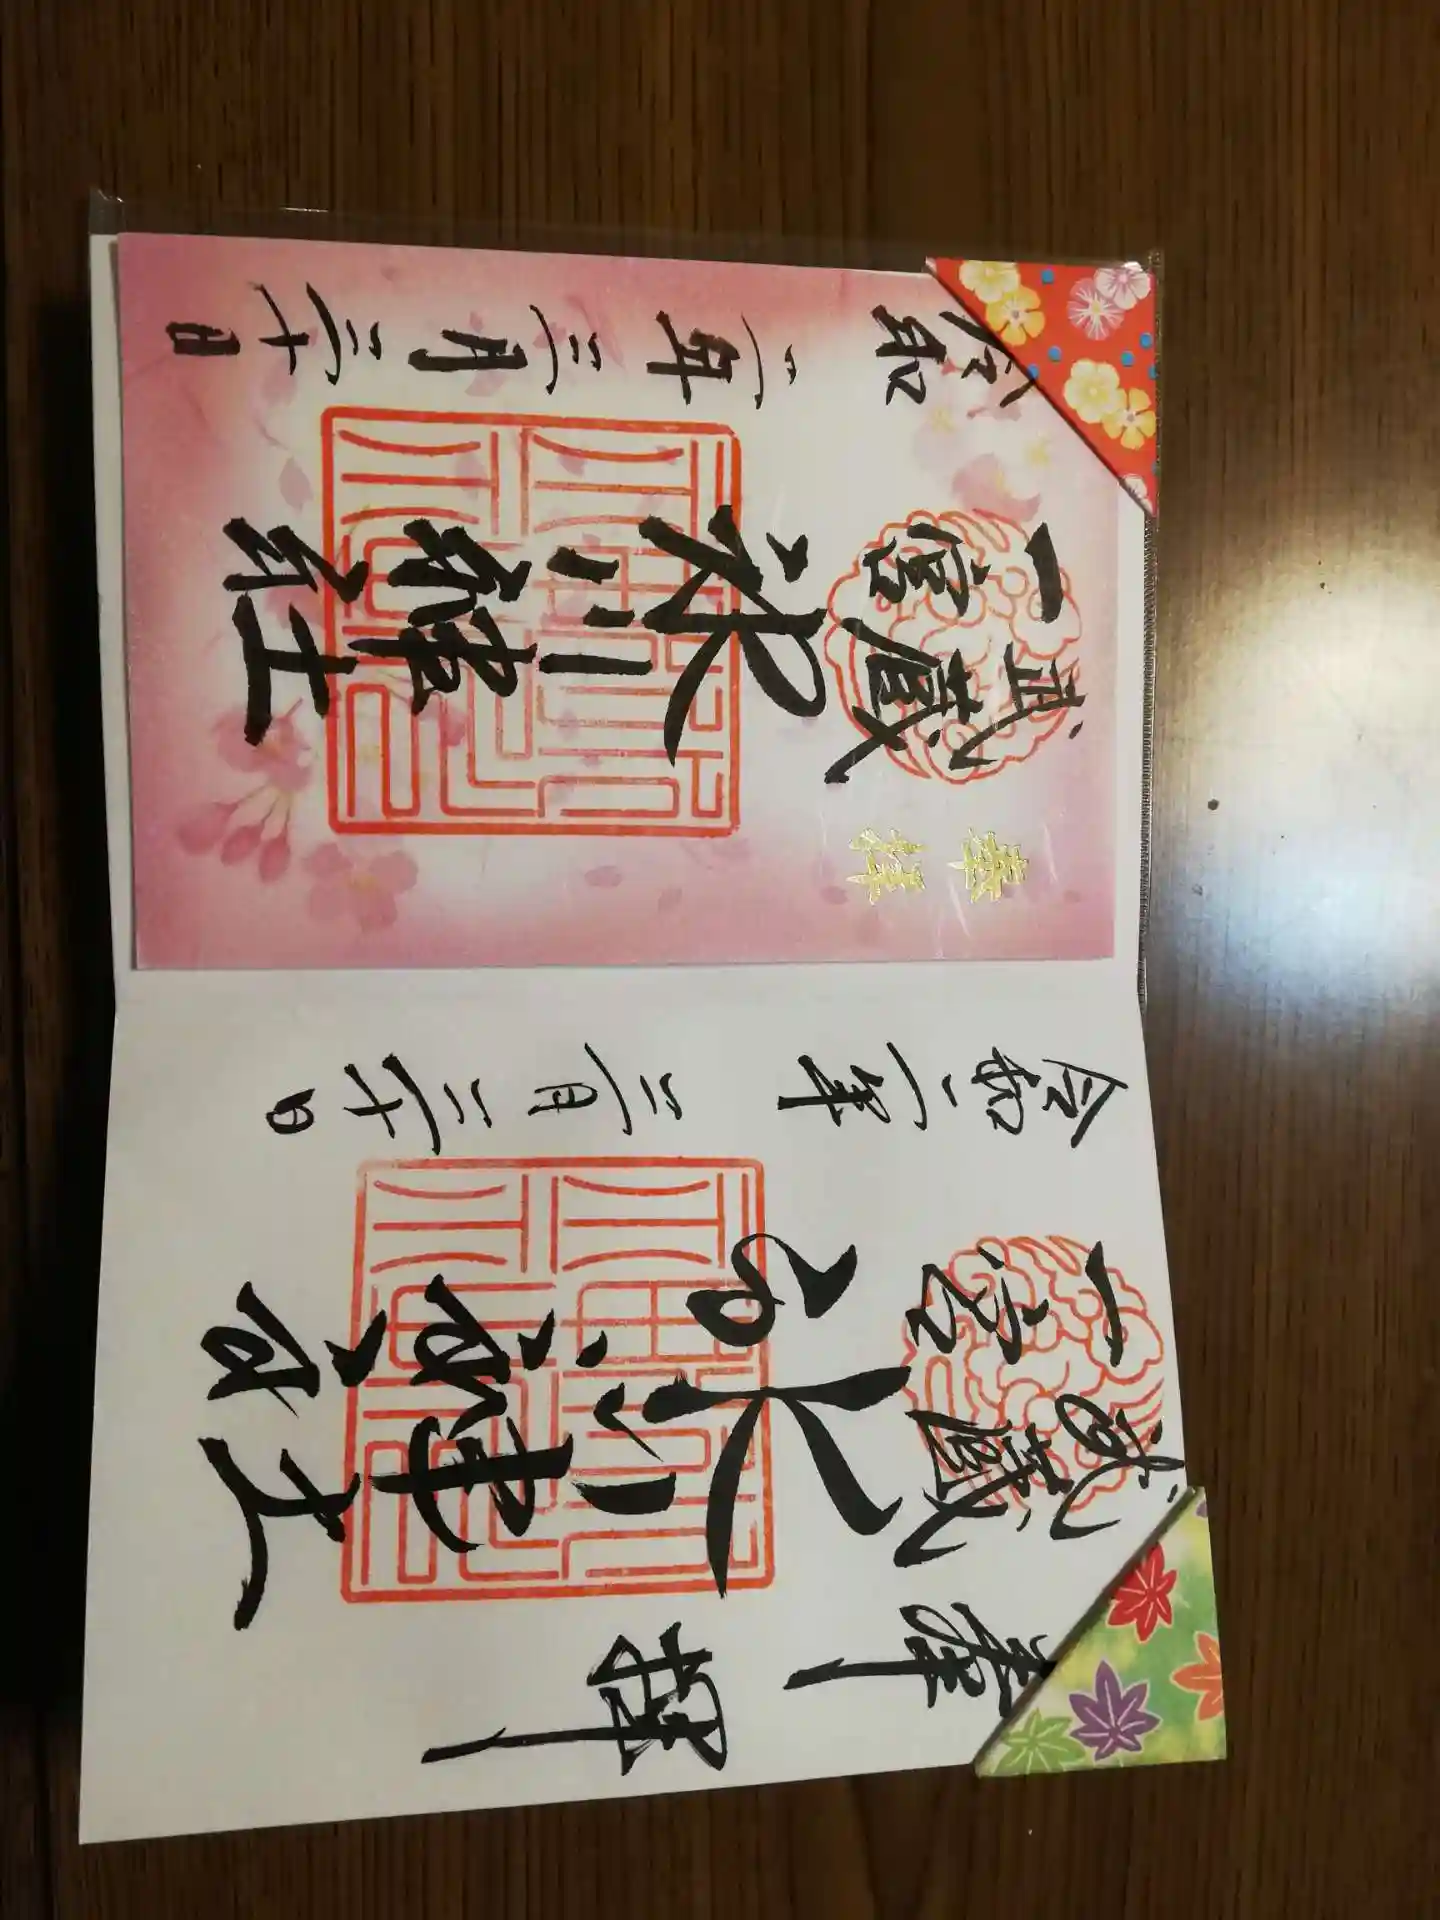 奉拝
武蔵
一宮
氷川神社
令和二年三月二十日
奉拝
武蔵
一宮
氷川神社
令和二年三月二十日